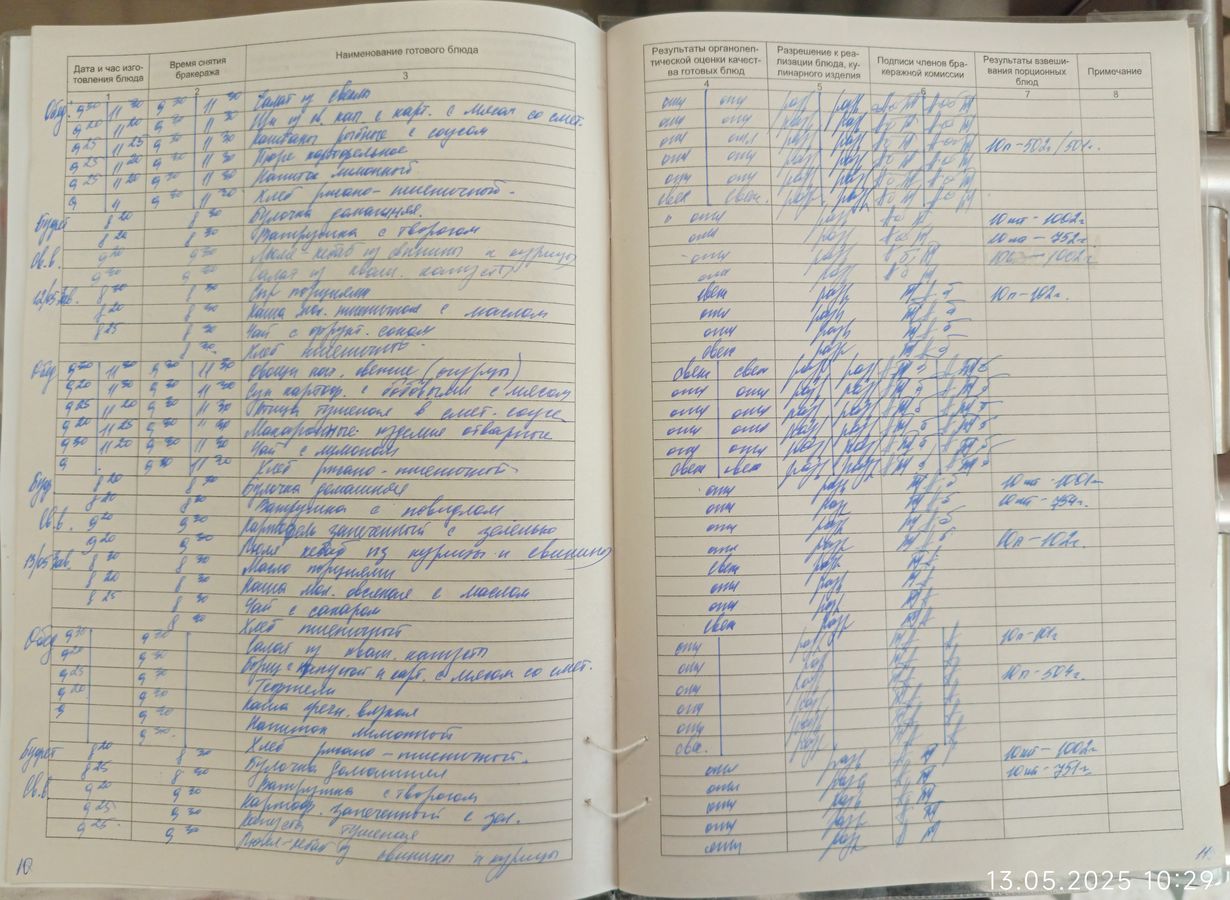 Дата и час изго-
товления блюда
Время снятия
бракеража
Наименование готового блюда
1 2 3
Обед 9 30 11 30 9 30 11 30 Салат из свеклы
9 20 11 20 9 30 11 30 Щи из св. кап. с карт. с мясом со смет.
9 25 11 25 9 30 11 30 рыбные с соусом
9 25 11 20 9 30 11 30 Пюре картофельное
9 25 11 25 9 30 11 30 Напиток лимонный
9 11 9 30 11 30 Хлеб ржано-пшеничной.
Буфет 8 20 8 30 Булочка домашняя.
8 20 8 30 Ватрушка с творогом
Св.в. 9 20 9 30 Люля-кебаб из свинины и курицы
9 20 9 30 Салат из кваш. капусты
12/05 Зав. 8 20 8 30 Сыр порциями
8 20 8 30 Каша мол. пшеничная с маслом
8 25 8 30 Чай с фрукт. соком
8 30 Хлеб пшеничнов.
Обед 9 20 11 30 9 30 11 30 Овощи нат. свежие (огурцы)
9 20 11 20 9 30 11 30 Суп картоф. с бобовыми с мясом
9 25 11 20 9 30 11 30 Птица тушеная в смет. соусе
9 20 11 25 9 30 11 30 Макаронные изделия отварные
9 30 11 20 9 30 11 30 Чай с лимоном
9 9 30 11 30 Хлеб ржано-пшеничной
Буф 8 20 8 30 Булочка домашняя
8 20 8 30 Ватрушка с повидлом
Св.в. 9 20 9 30 Картофель запеченный с зеленью
9 20 9 30 Люля кебаб из курицы и свинины
13/05 Зав. 8 20 8 30 Масло порциями
8 20 8 30 Каша мол. овсяная с маслом
8 25 8 30 Чай с сахаром
8 30 Хлеб пшеничный
Обед 9 30 9 30 Салат из кваш. капусты
9 20 9 30 Борщ с капустой и карт. с мясом со смет.
9 25 9 30 Тефтели
9 20 9 30 Каша гречн. вязкая
9 9 30 Напиток лимонный
9 30 Хлеб ржано-пшеничной.
Буфет 8 20 8 30 Булочка домашняя
8 25 8 30 Ватрушка с творогом
Св.в 9 20 9 30 Картоф. запеченный с зел.
9 25 9 30 Капуста тушеная
9 25 9 30 Люля-кебаб из свинины и курицы
10
Результаты органолеп-
тической оценки качест-
ва готовых блюд
Разрешение к реа-
лизации блюда, ку-
линарного изделия
Подписи членов бра-
керажной комиссии
Результаты взвеши-
вания порционных
блюд
Примечание
4 5 6 7 8
отл отл разр разр
отл отл разр разр
отл отл разр разр 10п-502г/501г.
отл отл разр разр
отл отл разр разр
свеж свеж. разр разр
отл разр 10шт-1002г
отл разр 10шт-752г.
отл разр 1002г
отл разр
свеж разр 10п-102г.
отл разр
отл разр
свеж разр
свеж свеж разр разр
отл отл разр разр
отл отл разр разр
отл отл разр разр
отл отл разр разр
свеж свеж разр разр
отл разр 10шт-1001г
отл разр 10шт-754г.
отл разр
отл разр 10п-102г.
свеж разр
отл разр
отл разр
свеж разр
отл разр 10п-101г
отл разр
отл разр 10п-504г.
отл разр
отл разр
свеж. разр
отл разр 10шт-1002г
отл разр 10шт-751г
отл разр
отл разр
отл разр
11
13.05.2025 10:29